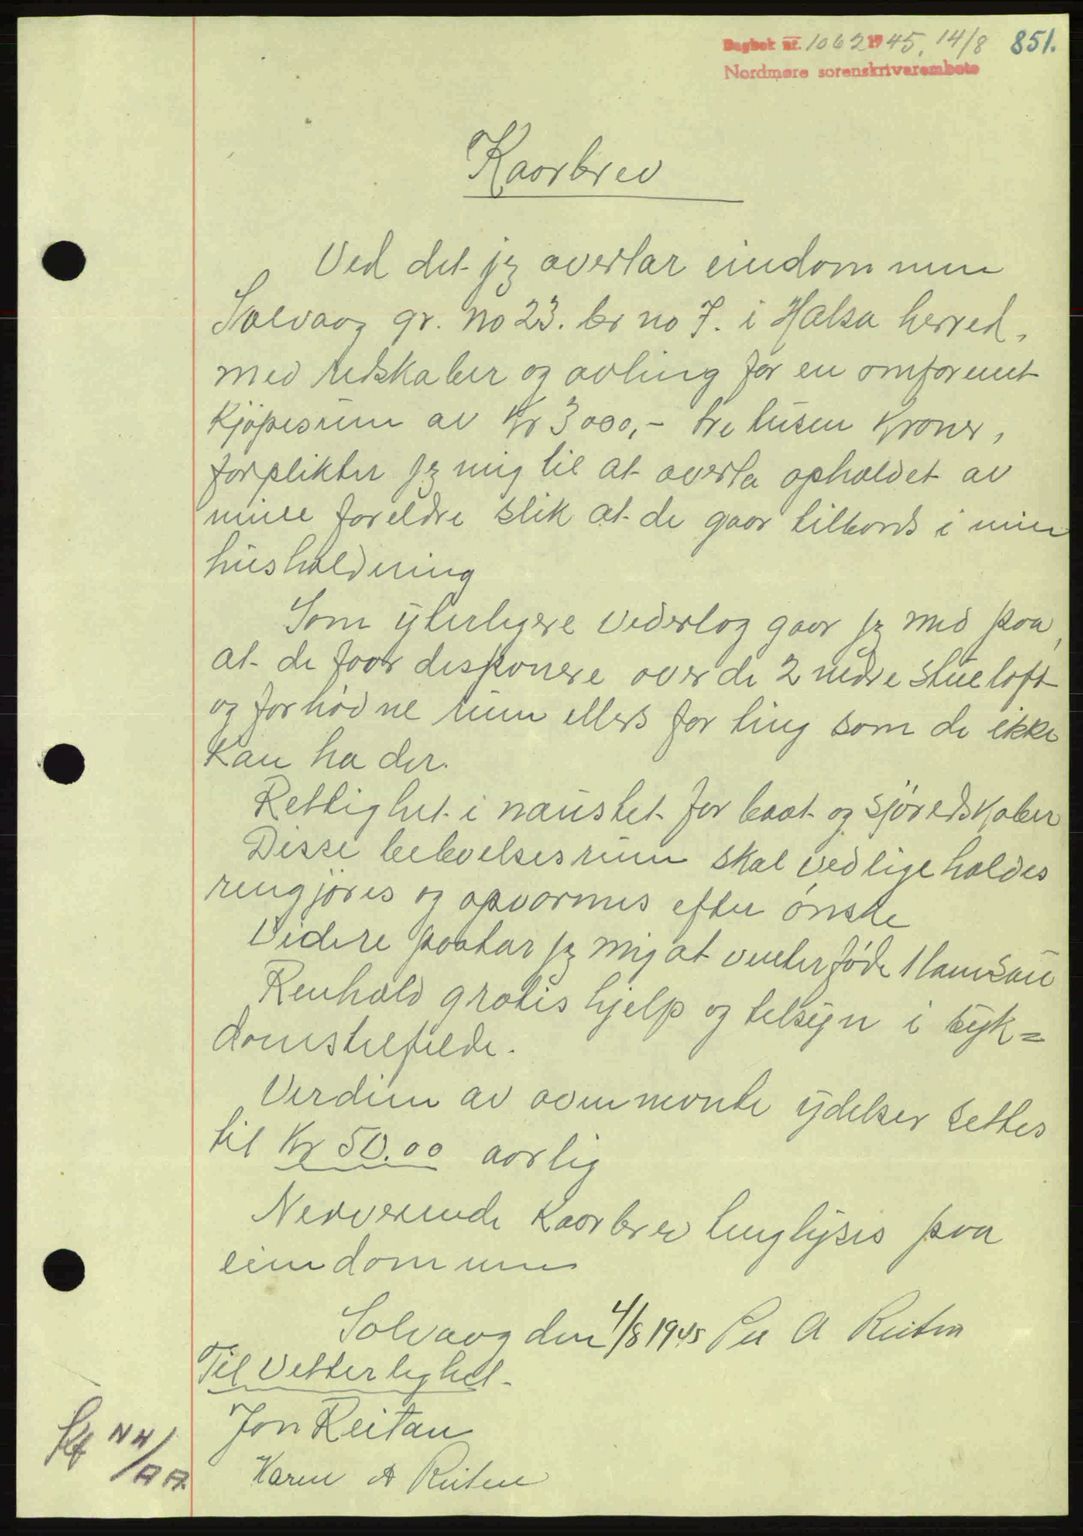 Dagbok nr. 1062 1945, 14/8 851.
Nordmøre sorenskrivarembete
Kaarbrev
Ved det jeg overtar eiendommen
Solvaag gr. no 23. br no 7. i Halsa herred,
med redskaber og avling for en omforenet
kjøpesum av Kr 3000,- tre tusen Kroner,
forplikter jeg mig til at overta opholdet av
mine foreldre slik at de gaar tilbords i min
husholdning
Som yterligere vederlag gaar jeg med paa,
at de faar disponere over de 2 nedre stueloft
og forhødne rum ellers for ting som de ikke
kan ha der.
Rettighet i naustet for baat og sjøredskaber
Disse beboelsesrum skal vedligeholdes
rengjøres og opvarmes efter ønske
Videre paatar jeg mig at vinterføde 1 lamsau
Renhold gratis hjelp og tilsyn i syk=
domstilfelde.
Verdien av ovennevnte ydelser settes
til Kr 50.00 aarlig
Nerverende Kaarbrev tinglyses paa
eiendommen
Solvaag den 4/8 1945 Per A Reiten
Til Vitterlighet.
Jon Reitan
Karen A Reiten
NH/AA.